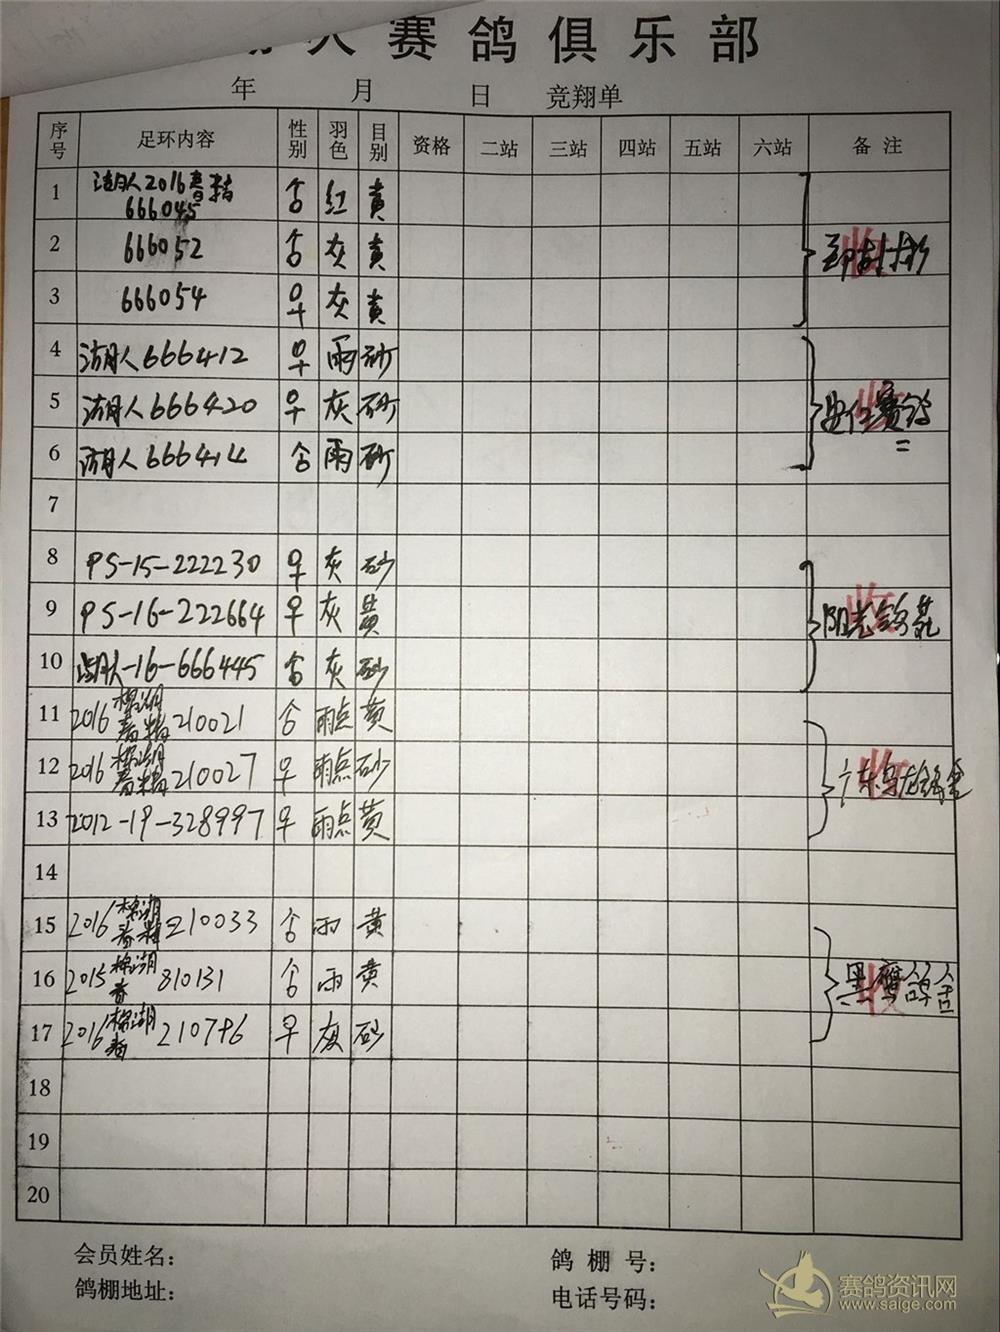 人赛鸽俱乐部
年 月 日 竞翔单
序号 足环内容 性别 羽色 目别 资格 二站 三站 四站 五站 六站 备注
1 湖人2016春精 666045 合 红 黄
2 666052 合 灰 黄
3 666054 早 灰 黄
4 湖人666412 早 雨 砂
5 湖人666420 早 灰 砂
6 湖人666414 合 雨 砂
7
8 PS-15-222230 早 灰 砂
9 PS-16-222664 早 灰 黄
10 湖人-16-666445 合 灰 砂
11 2016棉湖春精210021 合 雨点 黄
12 2016棉湖春精210027 早 雨点 砂
13 2012-19-328997 早 雨点 黄
14
15 2016棉湖春精210033 合 雨 黄
16 2015棉湖春810131 合 雨 黄 黑鹰鸽舍
17 2016棉湖春210796 早 灰 砂
18
19
20
收
收
收
收
收
会员姓名： 鸽棚号：
鸽棚地址： 电话号码：
赛鸽资讯网
www.saige.com